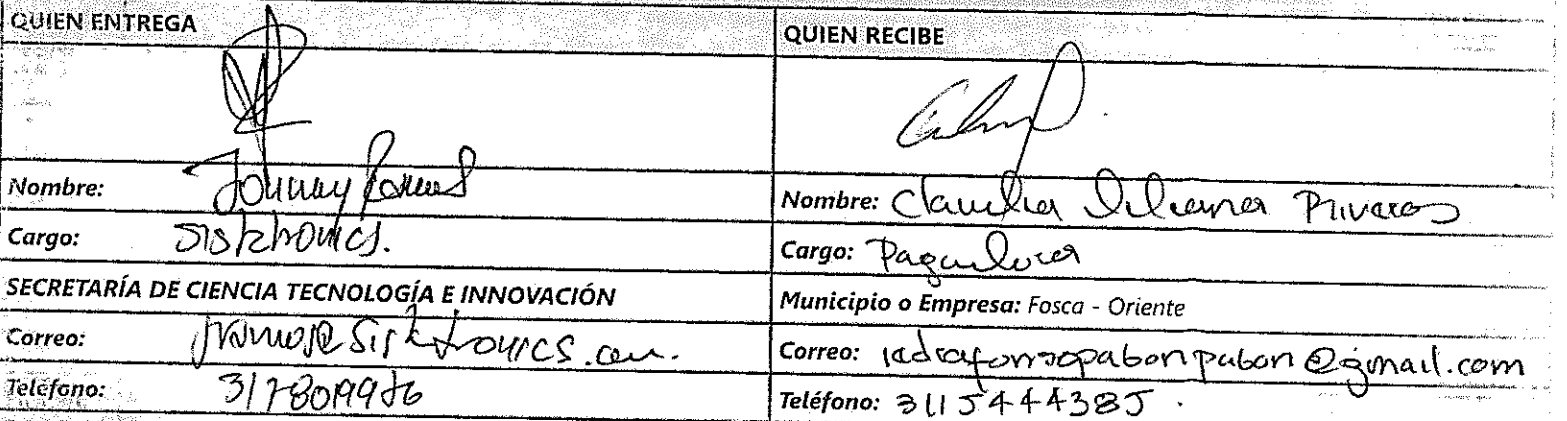 QUIEN ENTREGA
QUIEN RECIBE
Nombre: Johnny Ramos
Nombre: Claudia Liliana Riveros
Cargo: Sistetronics.
Cargo: Pagadora
SECRETARÍA DE CIENCIA TECNOLOGÍA E INNOVACIÓN
Municipio o Empresa: Fosca - Oriente
Correo:
Correo: iedrafonsopabonpabon@gmail.com
Teléfono:
Teléfono: 3115444385.